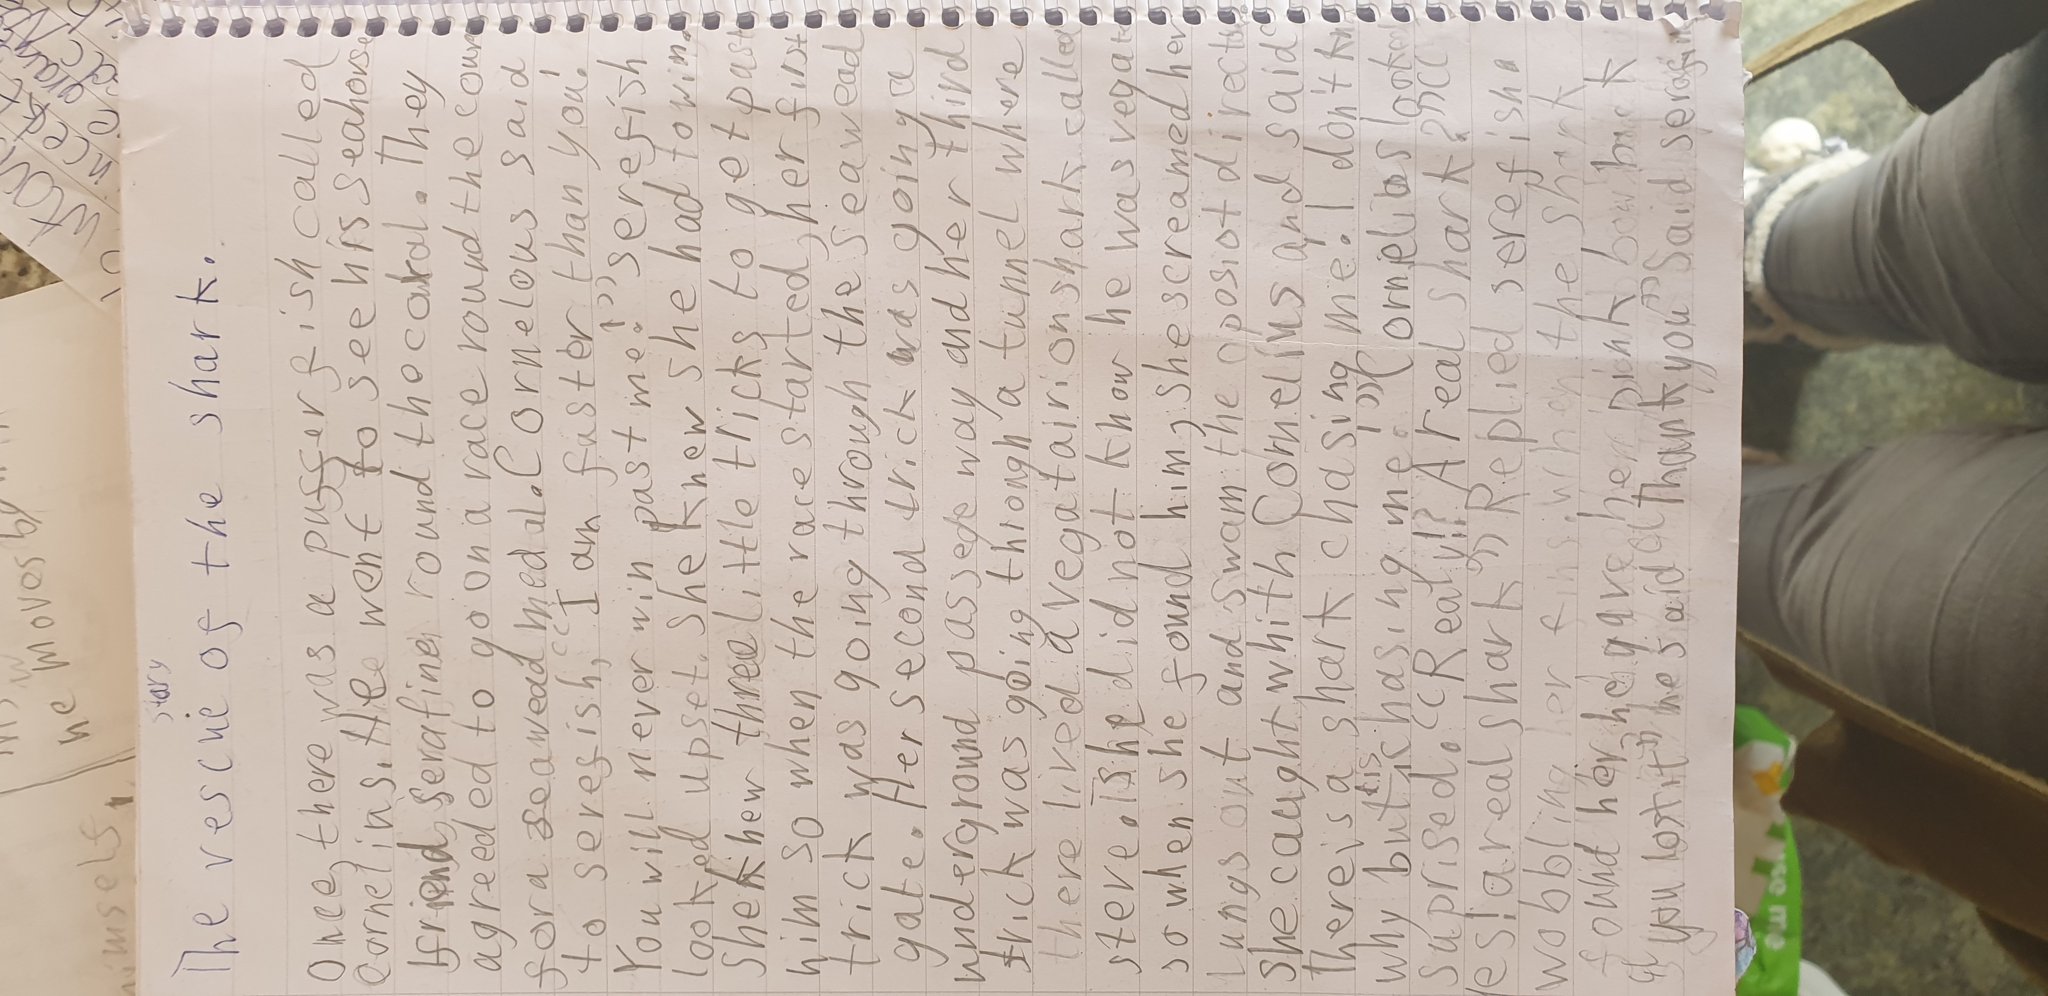 he moves b
himself.
story
The rescue of the shark.
Once, there was a pufferfish called
Cornelius. He went to see his seahorse
friend, serafine round the coral. They
agreeded to go on a race round the cour
for a seawead medal. Cornelous said
to serefish, "I am faster than you!
You will never win past me!" serefish
looked upset. She knew she had to win.
She knew three little tricks to get past
him so when the race started, her first
trick was going through the seawead
gate. Her second trick was going a
underground passege way and her third
trick was going through a tunnel where
there lived a vegatairion shark called
steve. She did not know he was vegat
so when she found him, she screamed her
lungs out and swam the oposiot directio
She caught whith Cornelius and said "
there is a shark chasing me! I don't kn
why but it is chasing me!" Cornelius looked
suprised. "Realy!? A real shark?" "
Yes! a real shark" Replied serefish
wobbling her fins. When the shark
found her, he gave her pink bow back
"you lost it" he said "Thank you" Said serafine